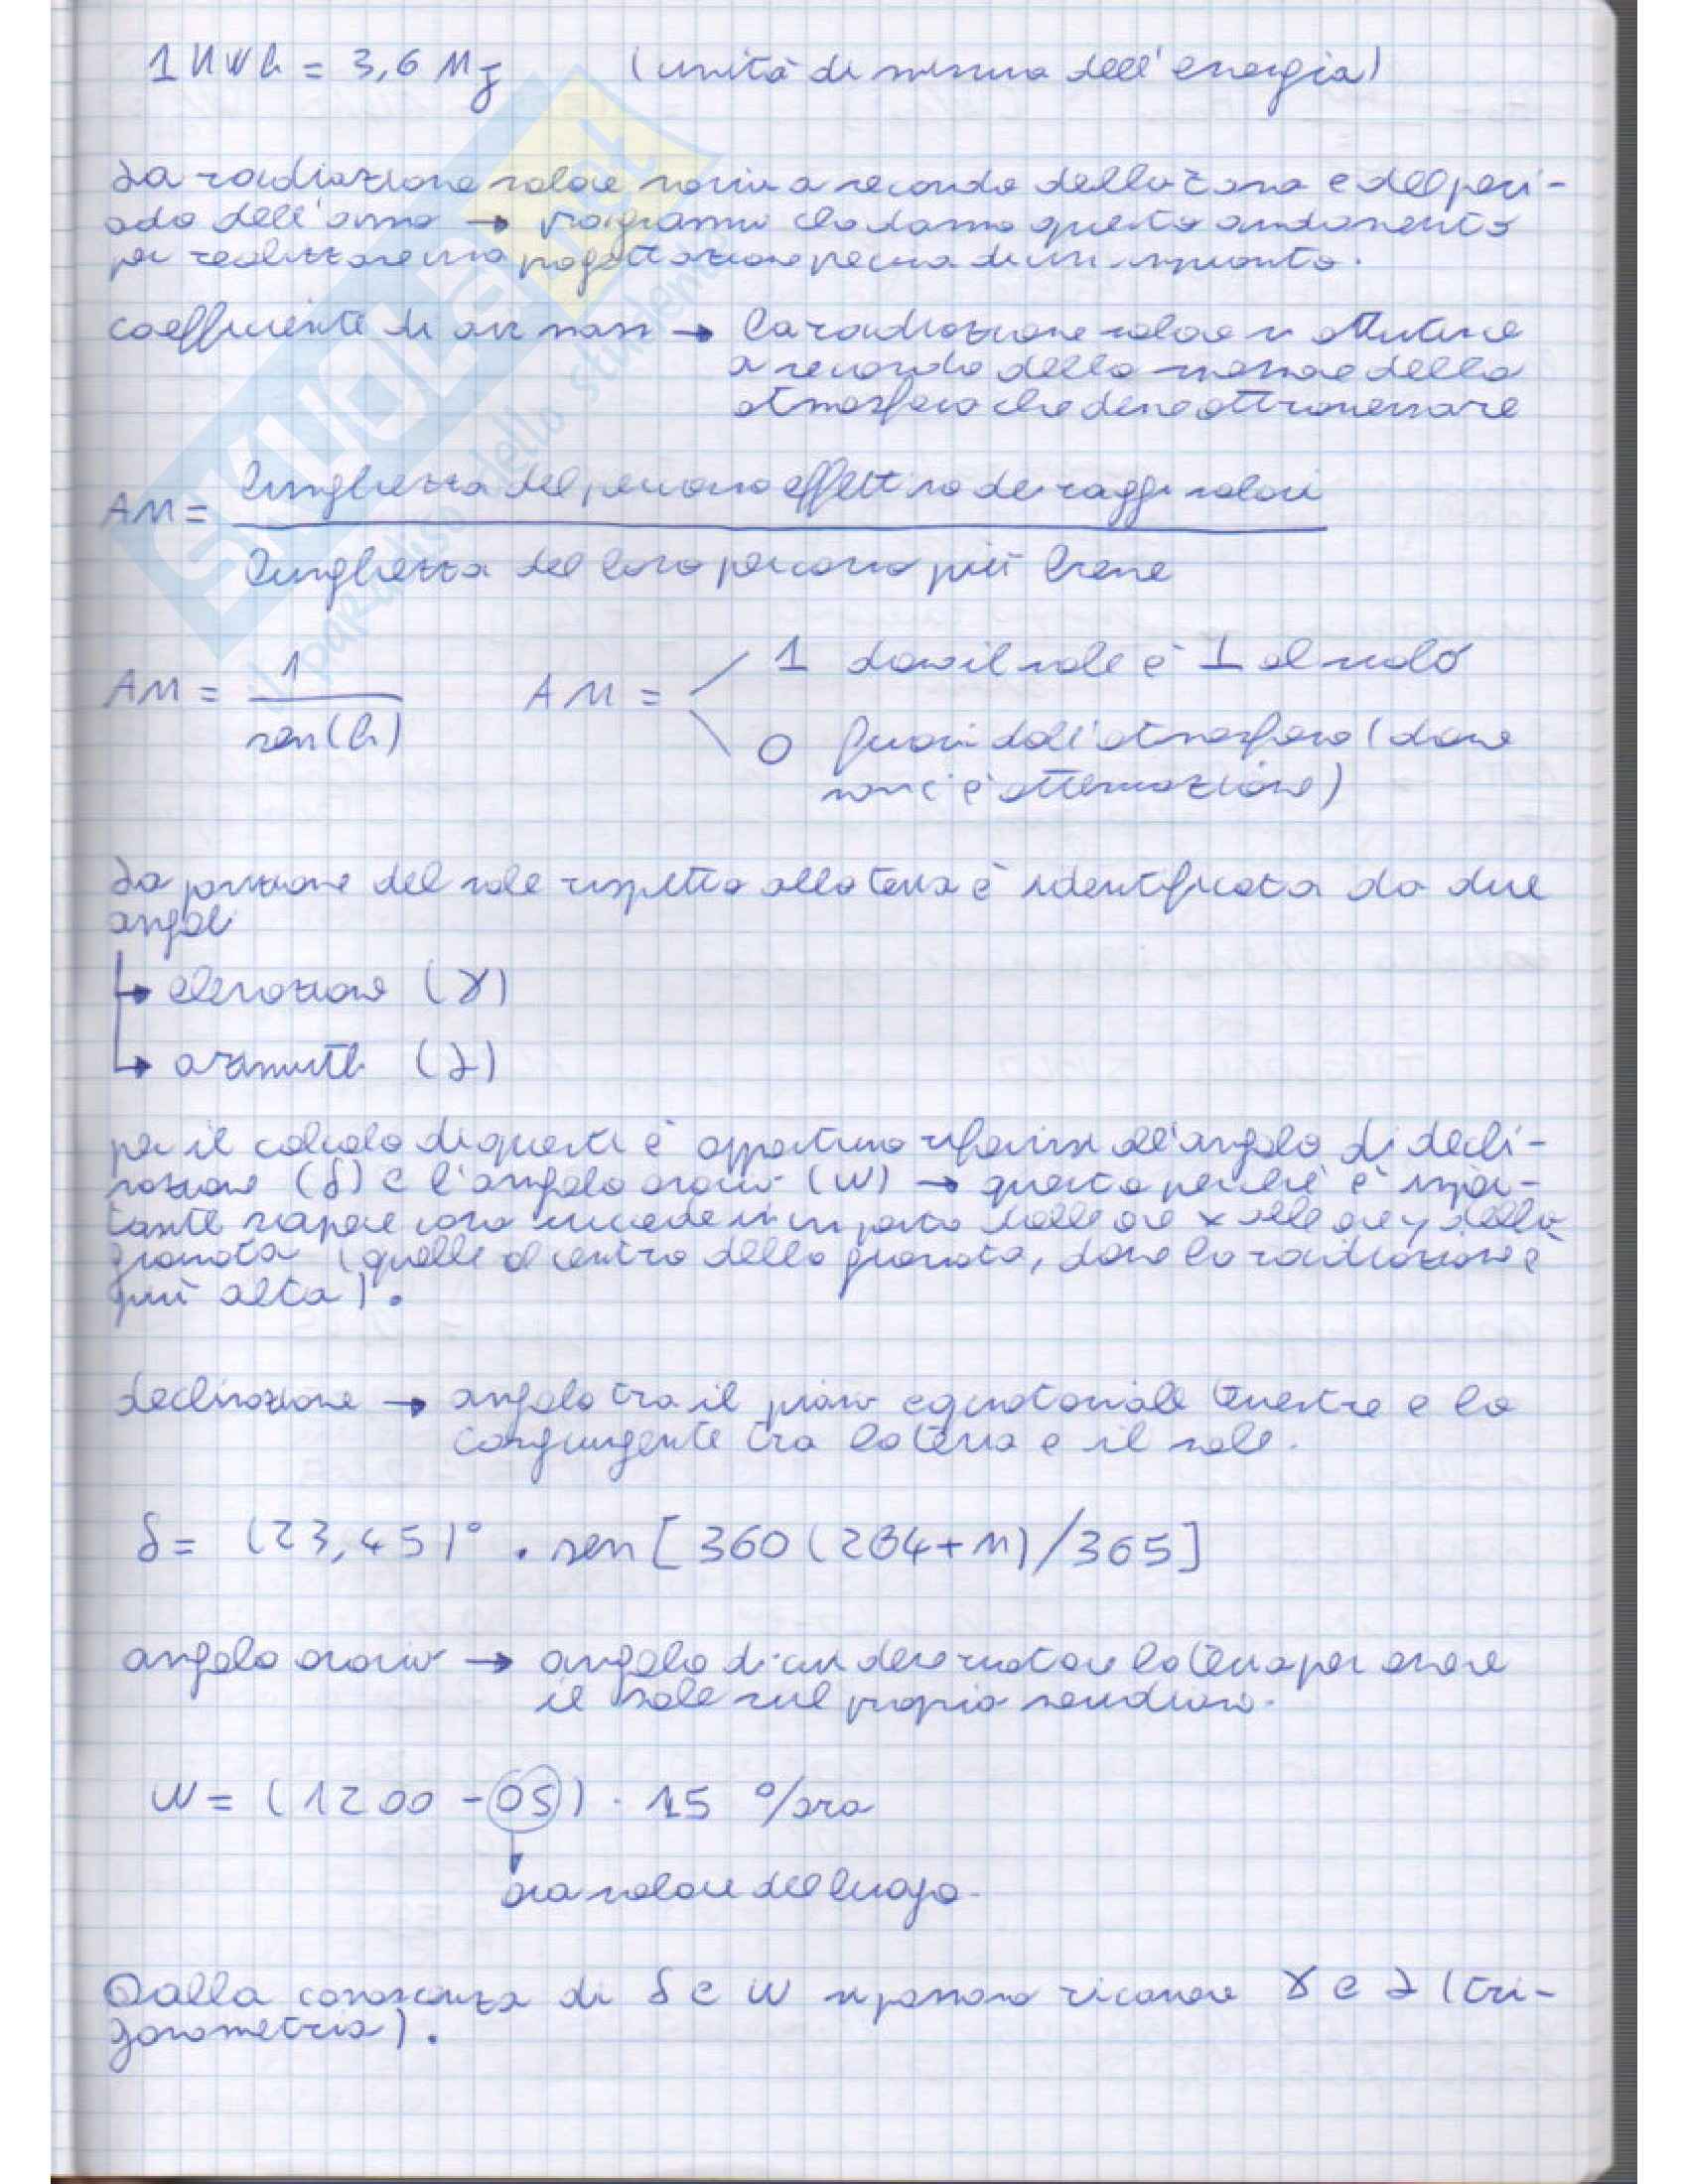 1 kWh = 3,6 MJ (unità di misura dell'energia)
La radiazione solare varia a seconda della zona e del peri-
odo dell'anno → programmi che danno questo andamento
per realizzare una progettazione precisa di un impianto.
coefficiente di air mass → la radiazione solare si attutisce
a seconda della massa della
atmosfera che deve attraversare
AM = lunghezza del percorso effettivo dei raggi solari
lunghezza del loro percorso più breve
AM = 1 / sen(h) AM = 1 dove il sole è ⊥ al suolo
0 fuori dall'atmosfera (dove
non c'è attenuazione)
La posizione del sole rispetto alla terra è identificata da due
angoli
↳ elevazione (γ)
↳ azimuth (λ)
per il calcolo di questi è opportuno riferirsi all'angolo di decli-
nazione (δ) e l'angolo orario (w) → questo perché è impor-
tante sapere cosa succede in un posto dalle ore x alle ore y della
giornata (quelle al centro della giornata, dove la radiazione è
più alta).
declinazione → angolo tra il piano equatoriale terrestre e la
congiungente tra la terra e il sole.
δ = (23,45)° · sen [360 (284+n)/365]
angolo orario → angolo di cui deve ruotare la terra per avere
il sole sul proprio meridiano.
w = (1200 - OS) · 15 °/ora
ora solare del luogo.
Dalla conoscenza di δ e w si possono ricavare γ e λ (tri-
gonometria).
SKUOLA.net
il paradiso dello studente